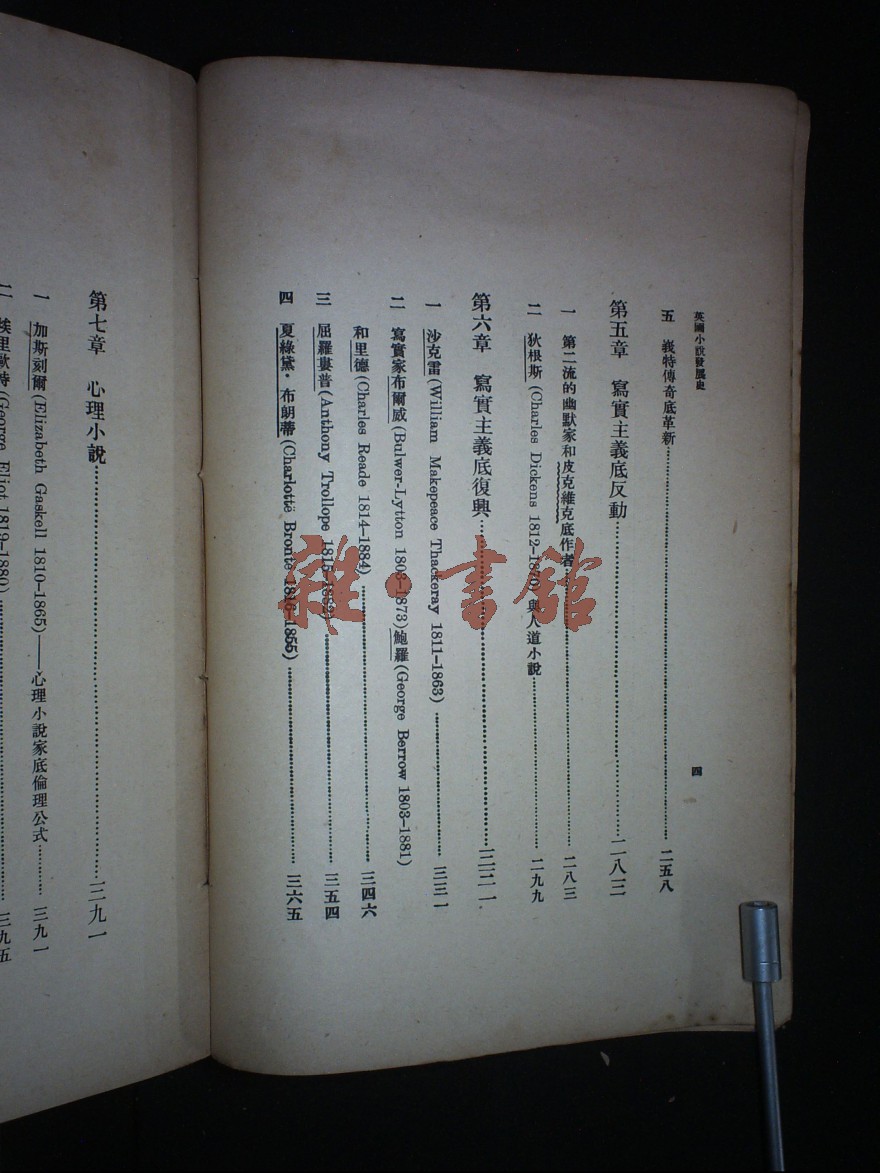 英國小說發展史
四
五 峩特傳奇底革新 二五八
第五章 寫實主義底反動 二八三
一 第二流的幽默家和皮克維克底作者 二八三
二 狄根斯(Charles Dickens 1812–1870)與人道小說 二九九
第六章 寫實主義底復興 三三一
一 沙克雷(William Makepeace Thackeray 1811–1863) 三三一
二 寫實家布爾威(Bulwer-Lytton 1803–1873)鮑羅(George Berrow 1803–1881)
和里德(Charles Reade 1814–1884) 三四六
三 屈羅婁普(Anthony Trollope 1815–1882) 三五四
四 夏綠黛·布朗蒂(Charlottë Bronte 1816–1855) 三六五
第七章 心理小說 三九一
一 加斯刻爾(Elizabeth Gaskell 1810–1865)——心理小說家底倫理公式 三九一
二 埃里歐特(George Eliot 1819–1880) 三九五
雜·書館